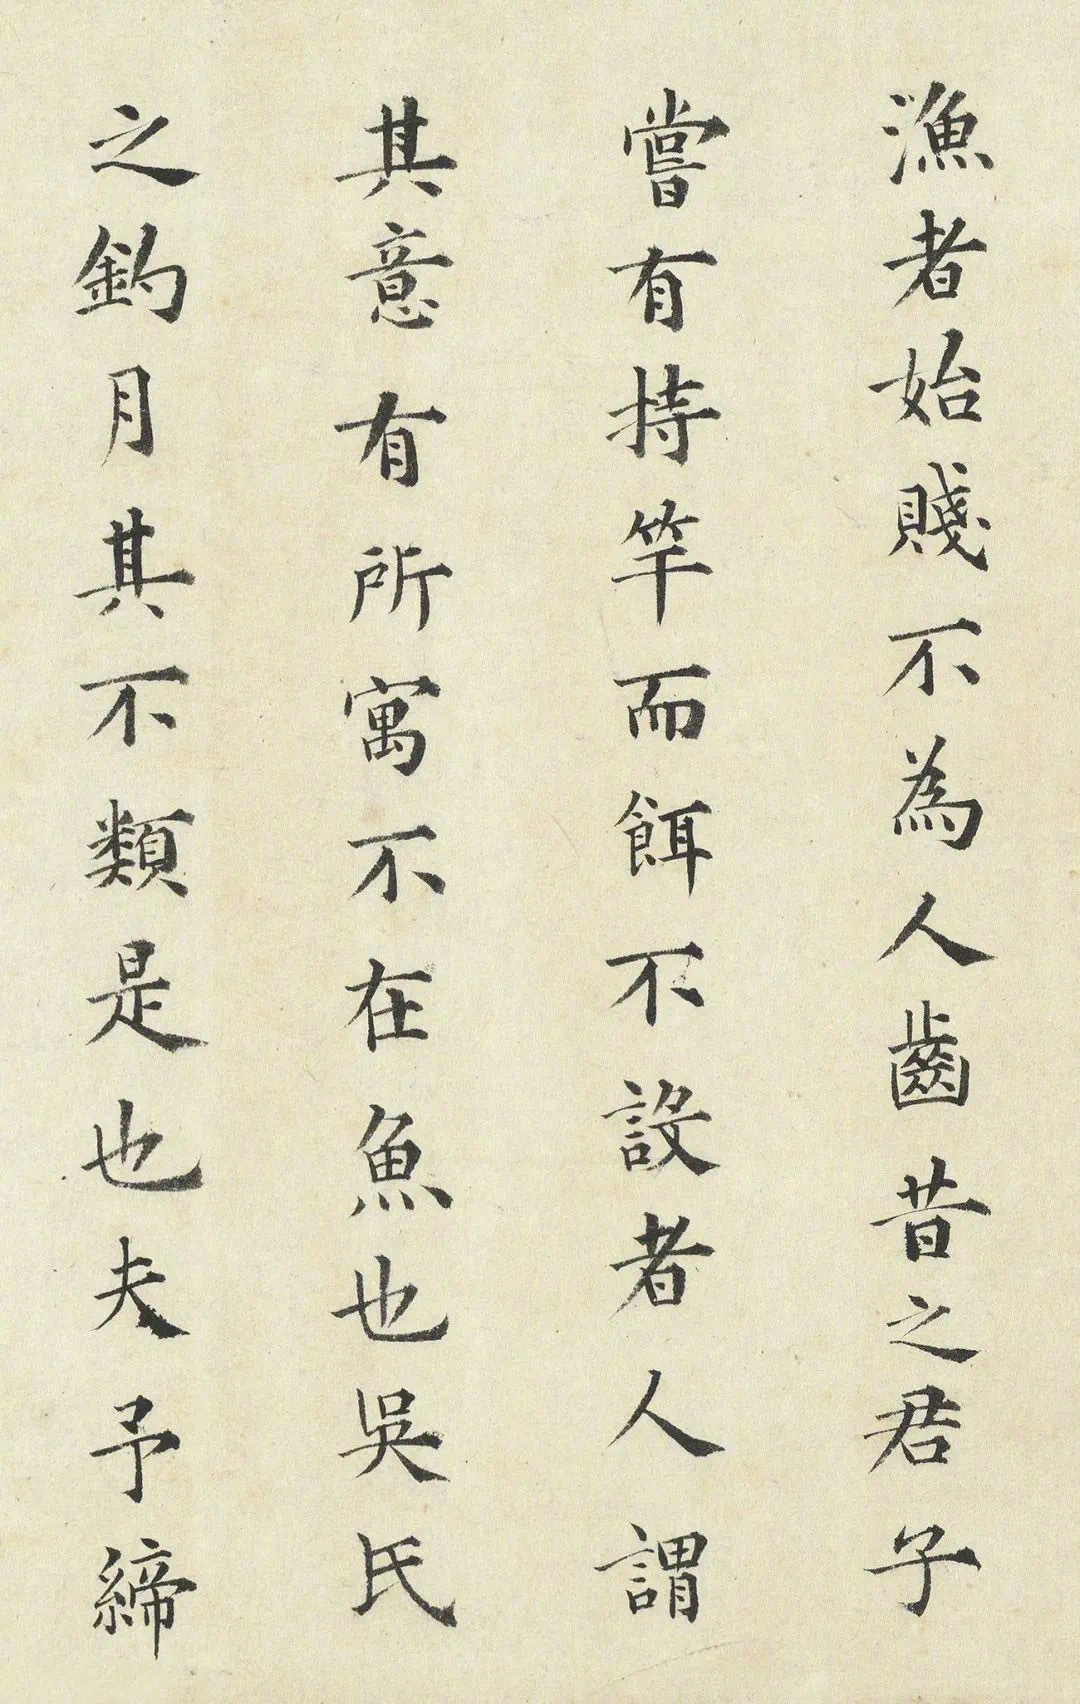 漁者始賤不為人齒昔之君子
嘗有持竿而餌不設者人謂
其意有所寓不在魚也吳氏
之釣月其不類是也夫予締